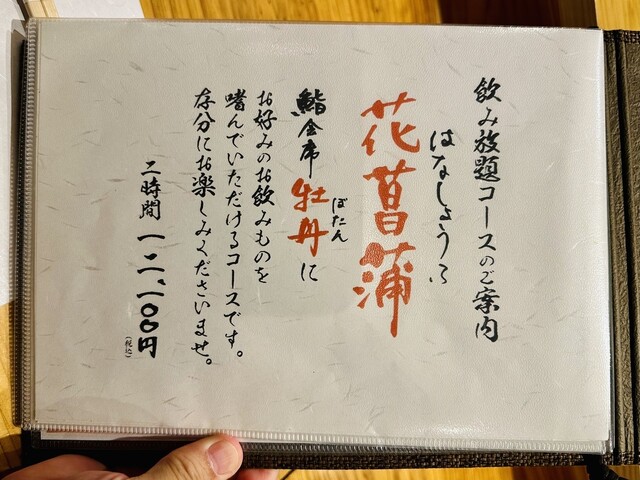 飲み放題コースのご案内
はなしょうぶ
花菖蒲
ぼたん
鮨会席 牡丹に
お好みのお飲みものを
嗜んでいただけるコースです。
存分にお楽しみくださいませ。
二時間 一二、一〇〇円
(税込)